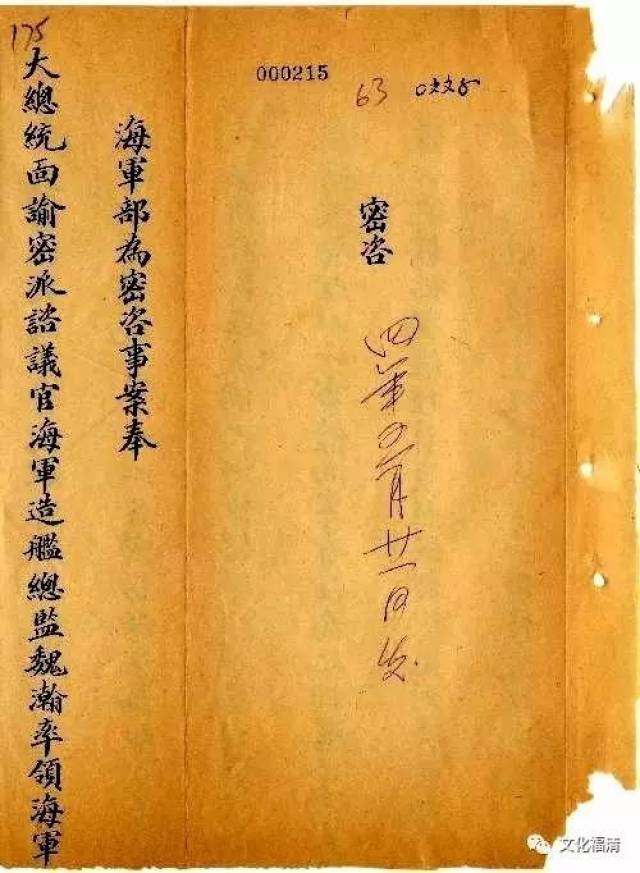 000215
63
密咨
四年五月廿一日发
海軍部為密咨事案奉
大總統面諭密派諮議官海軍造艦總監魏瀚率領海軍
175
文化福清